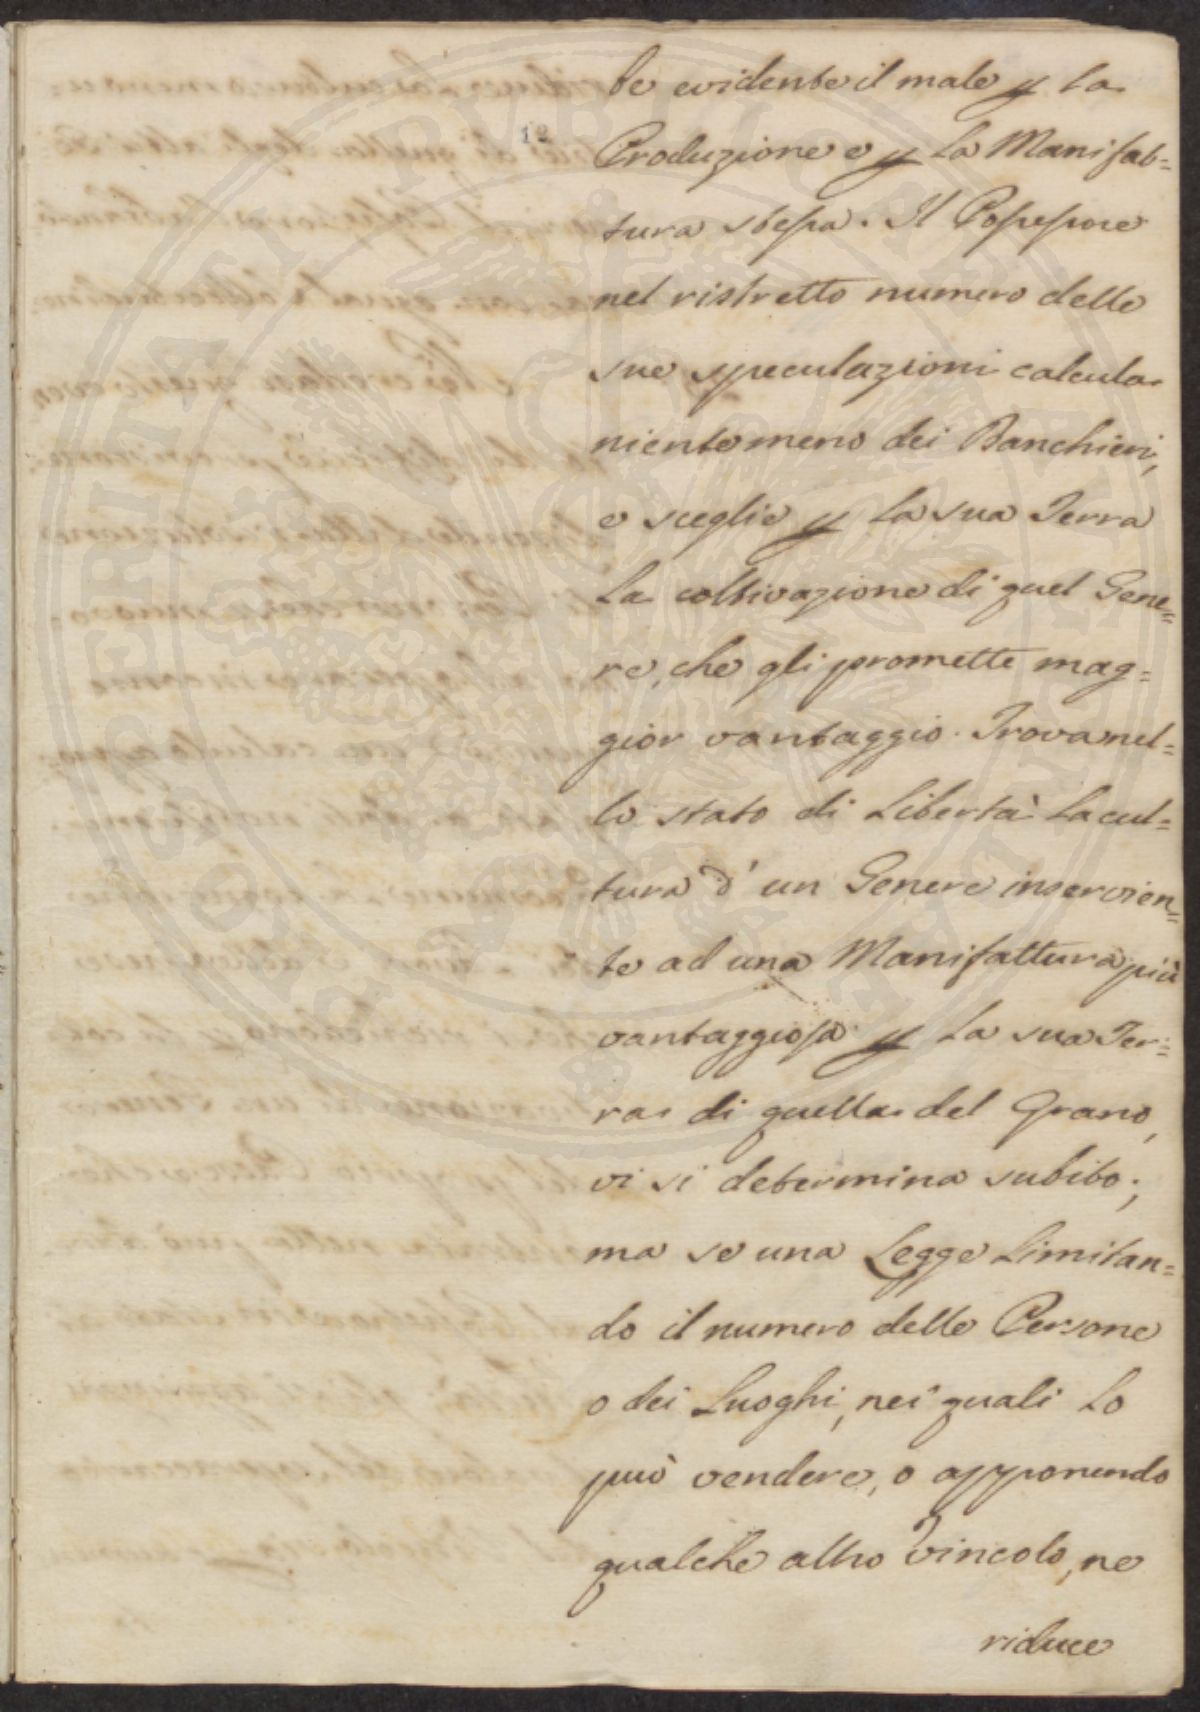 te evidente il male p la
12
Produzione e p la Manifat=
tura stessa. Il Possessore
nel ristretto numero delle
sue speculazioni calcula
nientemeno dei Banchieri,
e sceglie p la sua Terra
la coltivazione di quel Gene=
re, che gli promette mag=
gior vantaggio. Trova nel=
lo stato di Libertà la cul=
tura d' un Genere inservien=
te ad una Manifattura più
vantaggiosa p la sua Ter=
ra di quella del Grano,
vi si determina subito;
ma se una Legge limitan=
do il numero delle Persone
o dei Luoghi, nei quali lo
può vendere, o apponendo
qualche altro vincolo, ne
riduce